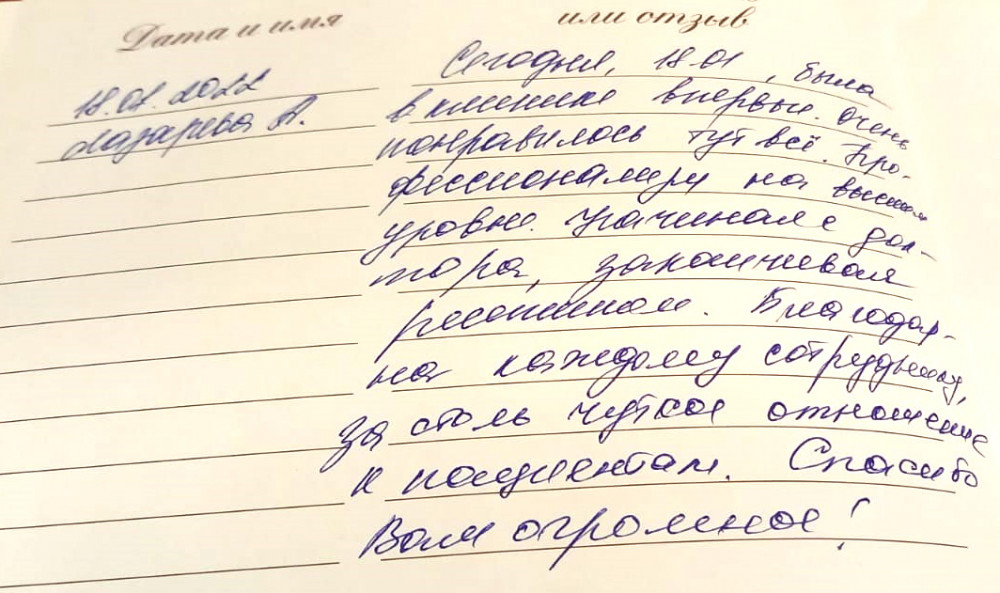 Дата и имя
или отзыв
18.01.2022
Лазарева А.
Сегодня, 18.01, была
в клинике впервые. Очень
понравилось тут всё. Про-
фессионалы на высшем
уровне. Начиная с док-
тора, заканчивая
Благодар-
на каждому сотруднику,
за столь чуткое отношение
к пациентам. Спасибо
Вам огромное!